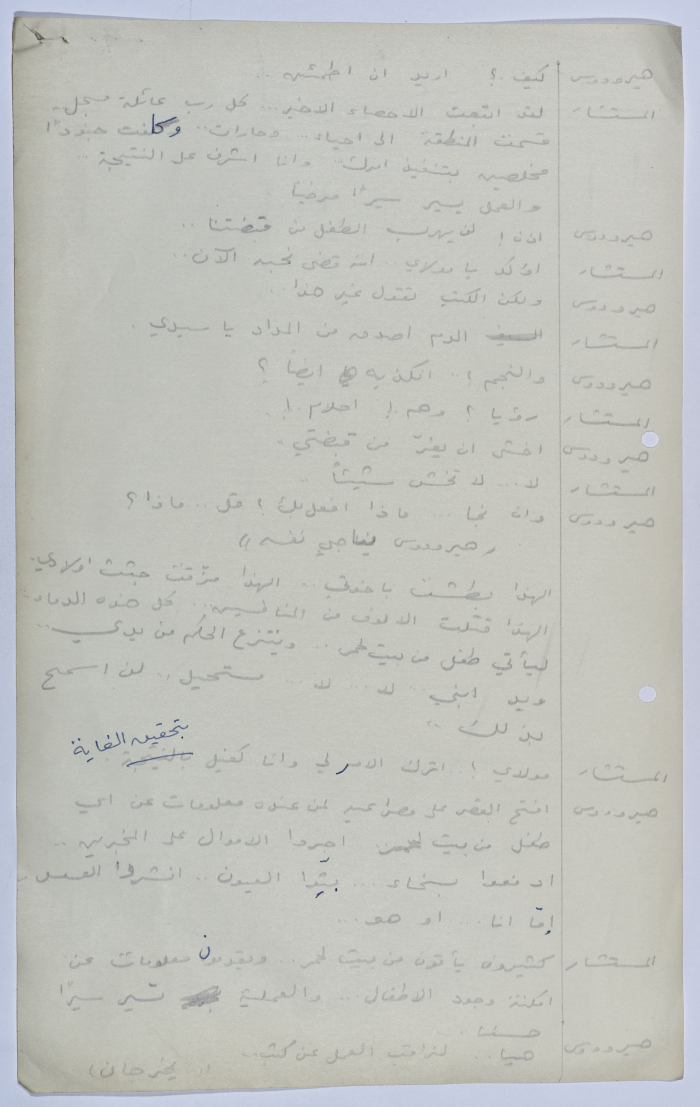 هيرودوس كيف ؟ اريد ان اطمئن ..
المستشار لقد انتهت الاحصاء الاخير... كل رب عائلة مسجل..
قسمت المنطقة الى احياء... وحارات.. وكلفت جنودًا
مخلصين بتنفيذ امرك.. وانا اشرف على النتيجة ..
والعمل يسير سيرًا مرضيًا
هيرودوس اذن ! لن يهرب الطفل من قبضتنا ..
المستشار اؤكد يا مولاي.. انه قضى نحبه الآن..
هيرودوس ولكن الكتب تقول غير هذا..
المستشار الدم اصدق من المداد يا سيدي .
هيرودوس والنجم ؟.. انكذبه ايضًا ؟
المستشار رؤيا ؟ وهم ! احلام !.
هيرودوس اخشى ان يفرّ من قبضتي.
المستشار لا... لا تخش شيئًا ..
هيرودوس وان نجا ... ماذا افعل بك ؟ قل .. ماذا ؟
(هيرودوس يناجي نفسه)
الهذا بطشت باخوتي .. الهذا مزّقت جثث اولادي..
الهذا قتلت الالوف من المنافسين.. كل هذه الدماء..
ليأتي طفل من بيت لحم .. وينتزع الحكم من يدي...
ويد ابني.. لا... لا... مستحيل.. لن اسمح
بذلك ..
المستشار مولاي !.. اترك الامر لي وانا كفيل بتحقيق الغاية
هيرودوس افتح القصر على مصراعيه لمن عنده معلومات عن اي
طفل من بيت لحم. اجروا الاموال على المخبرين ..
ادفعوا بسخاء.... بثّوا العيون .. انشروا العسس..
إمّا انا... او هو...
المستشار كثيرون يأتون من بيت لحم... ويقدمون معلومات عن
امكنة وجود الاطفال... والعملية تسير سيرًا
حسنًا ..
هيرودوس هيا.. لنراقب العمل عن كثب..
(يخرجان)